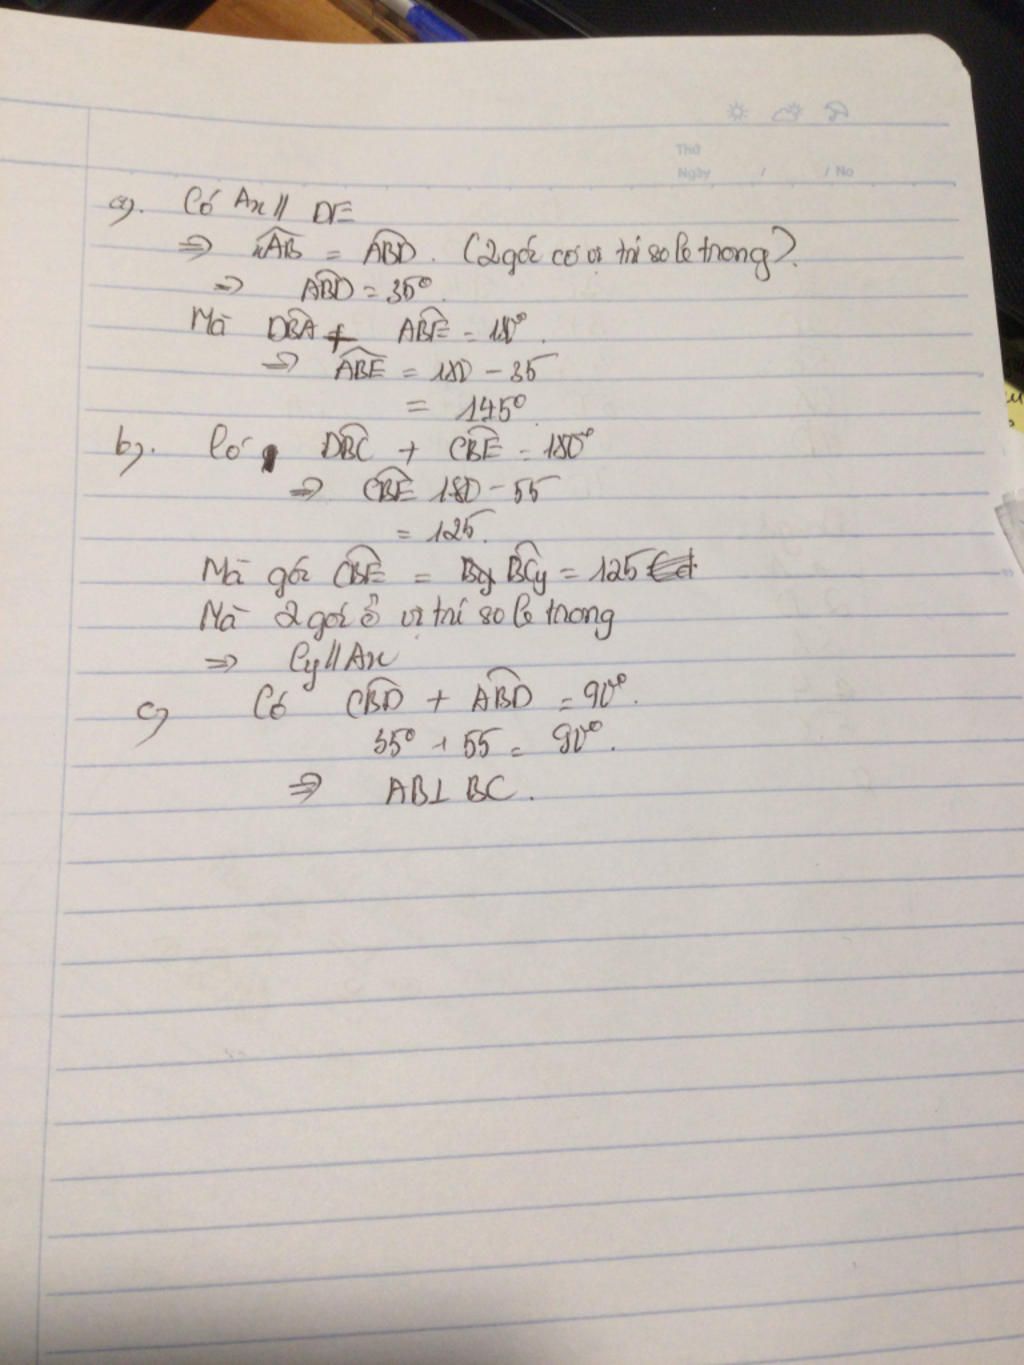 Thứ
Ngày / / No
a). Có Ax // DE
⇒ xAB = ABD. (2 góc có vị trí so le trong).
⇒ ABD = 35°.
Mà DBA + ABE = 180°.
⇒ ABE = 180 - 35
= 145°
b). Có DBC + CBE = 180°
⇒ CBE 180 - 55
= 125.
Mà góc CBE = BCy = 125
Mà 2 góc ở vị trí so le trong
⇒ Cy // Ax
c) Có CBD + ABD = 90°.
35° + 55 = 90°.
⇒ AB ⊥ BC.